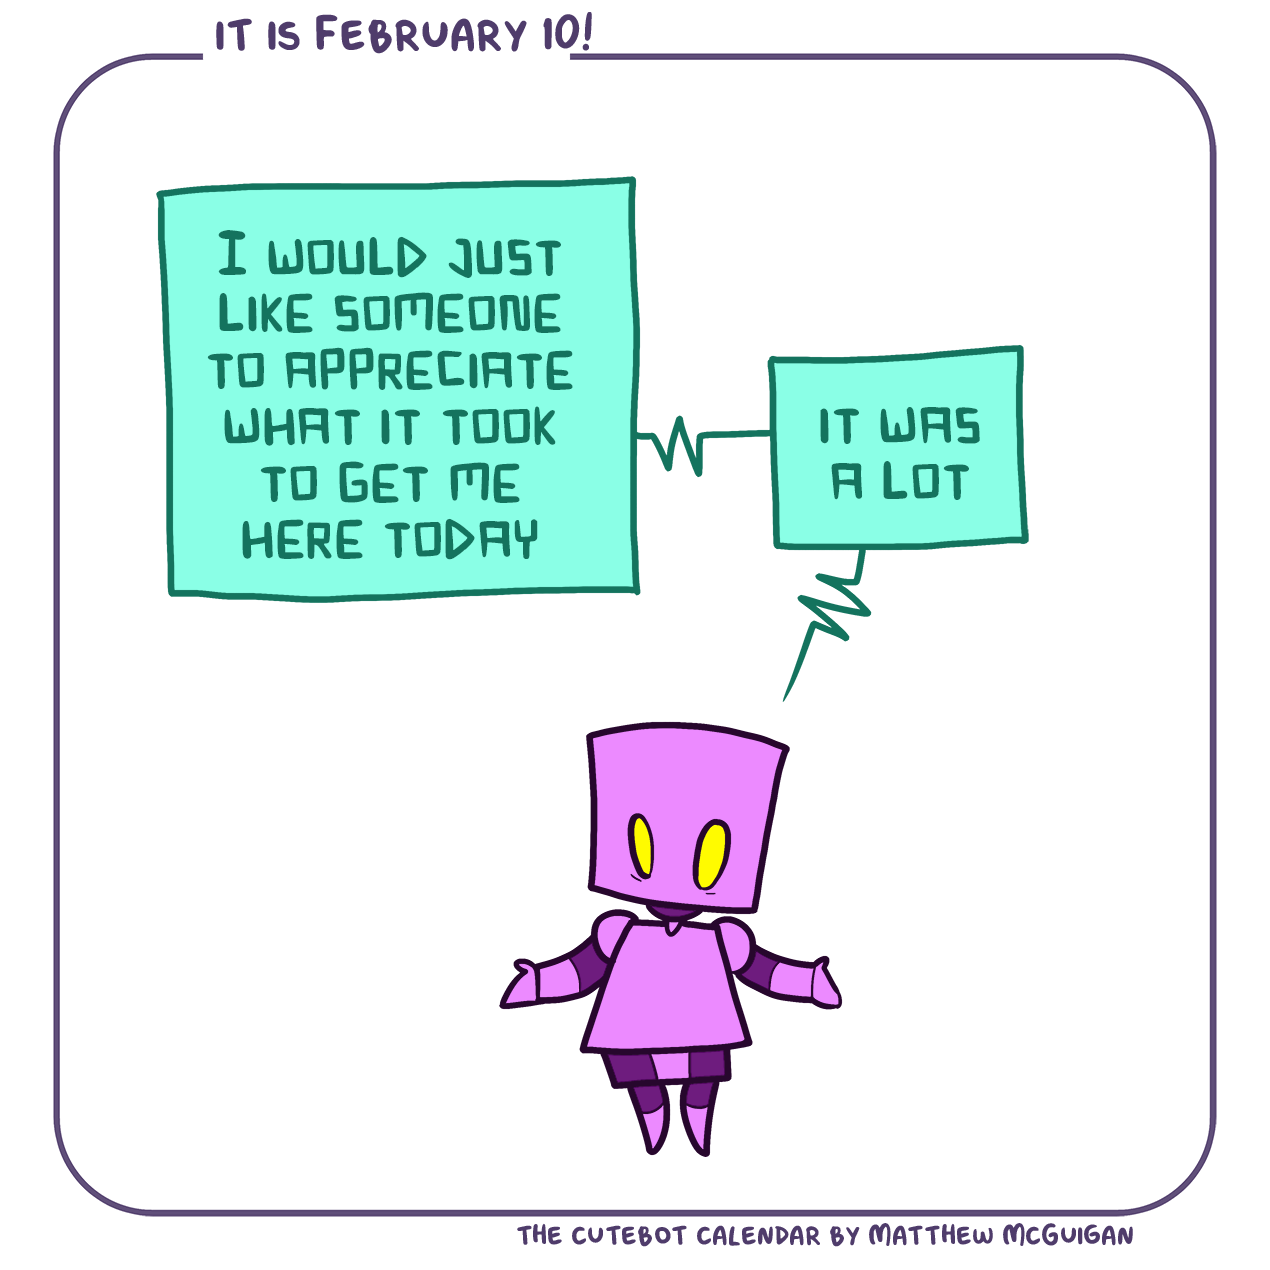 IT IS FEBRUARY 10!
I WOULD JUST
LIKE SOMEONE
TO APPRECIATE
WHAT IT TOOK
TO GET ME
HERE TODAY
IT WAS
A LOT
THE CUTEBOT CALENDAR BY MATTHEW MCGUIGAN